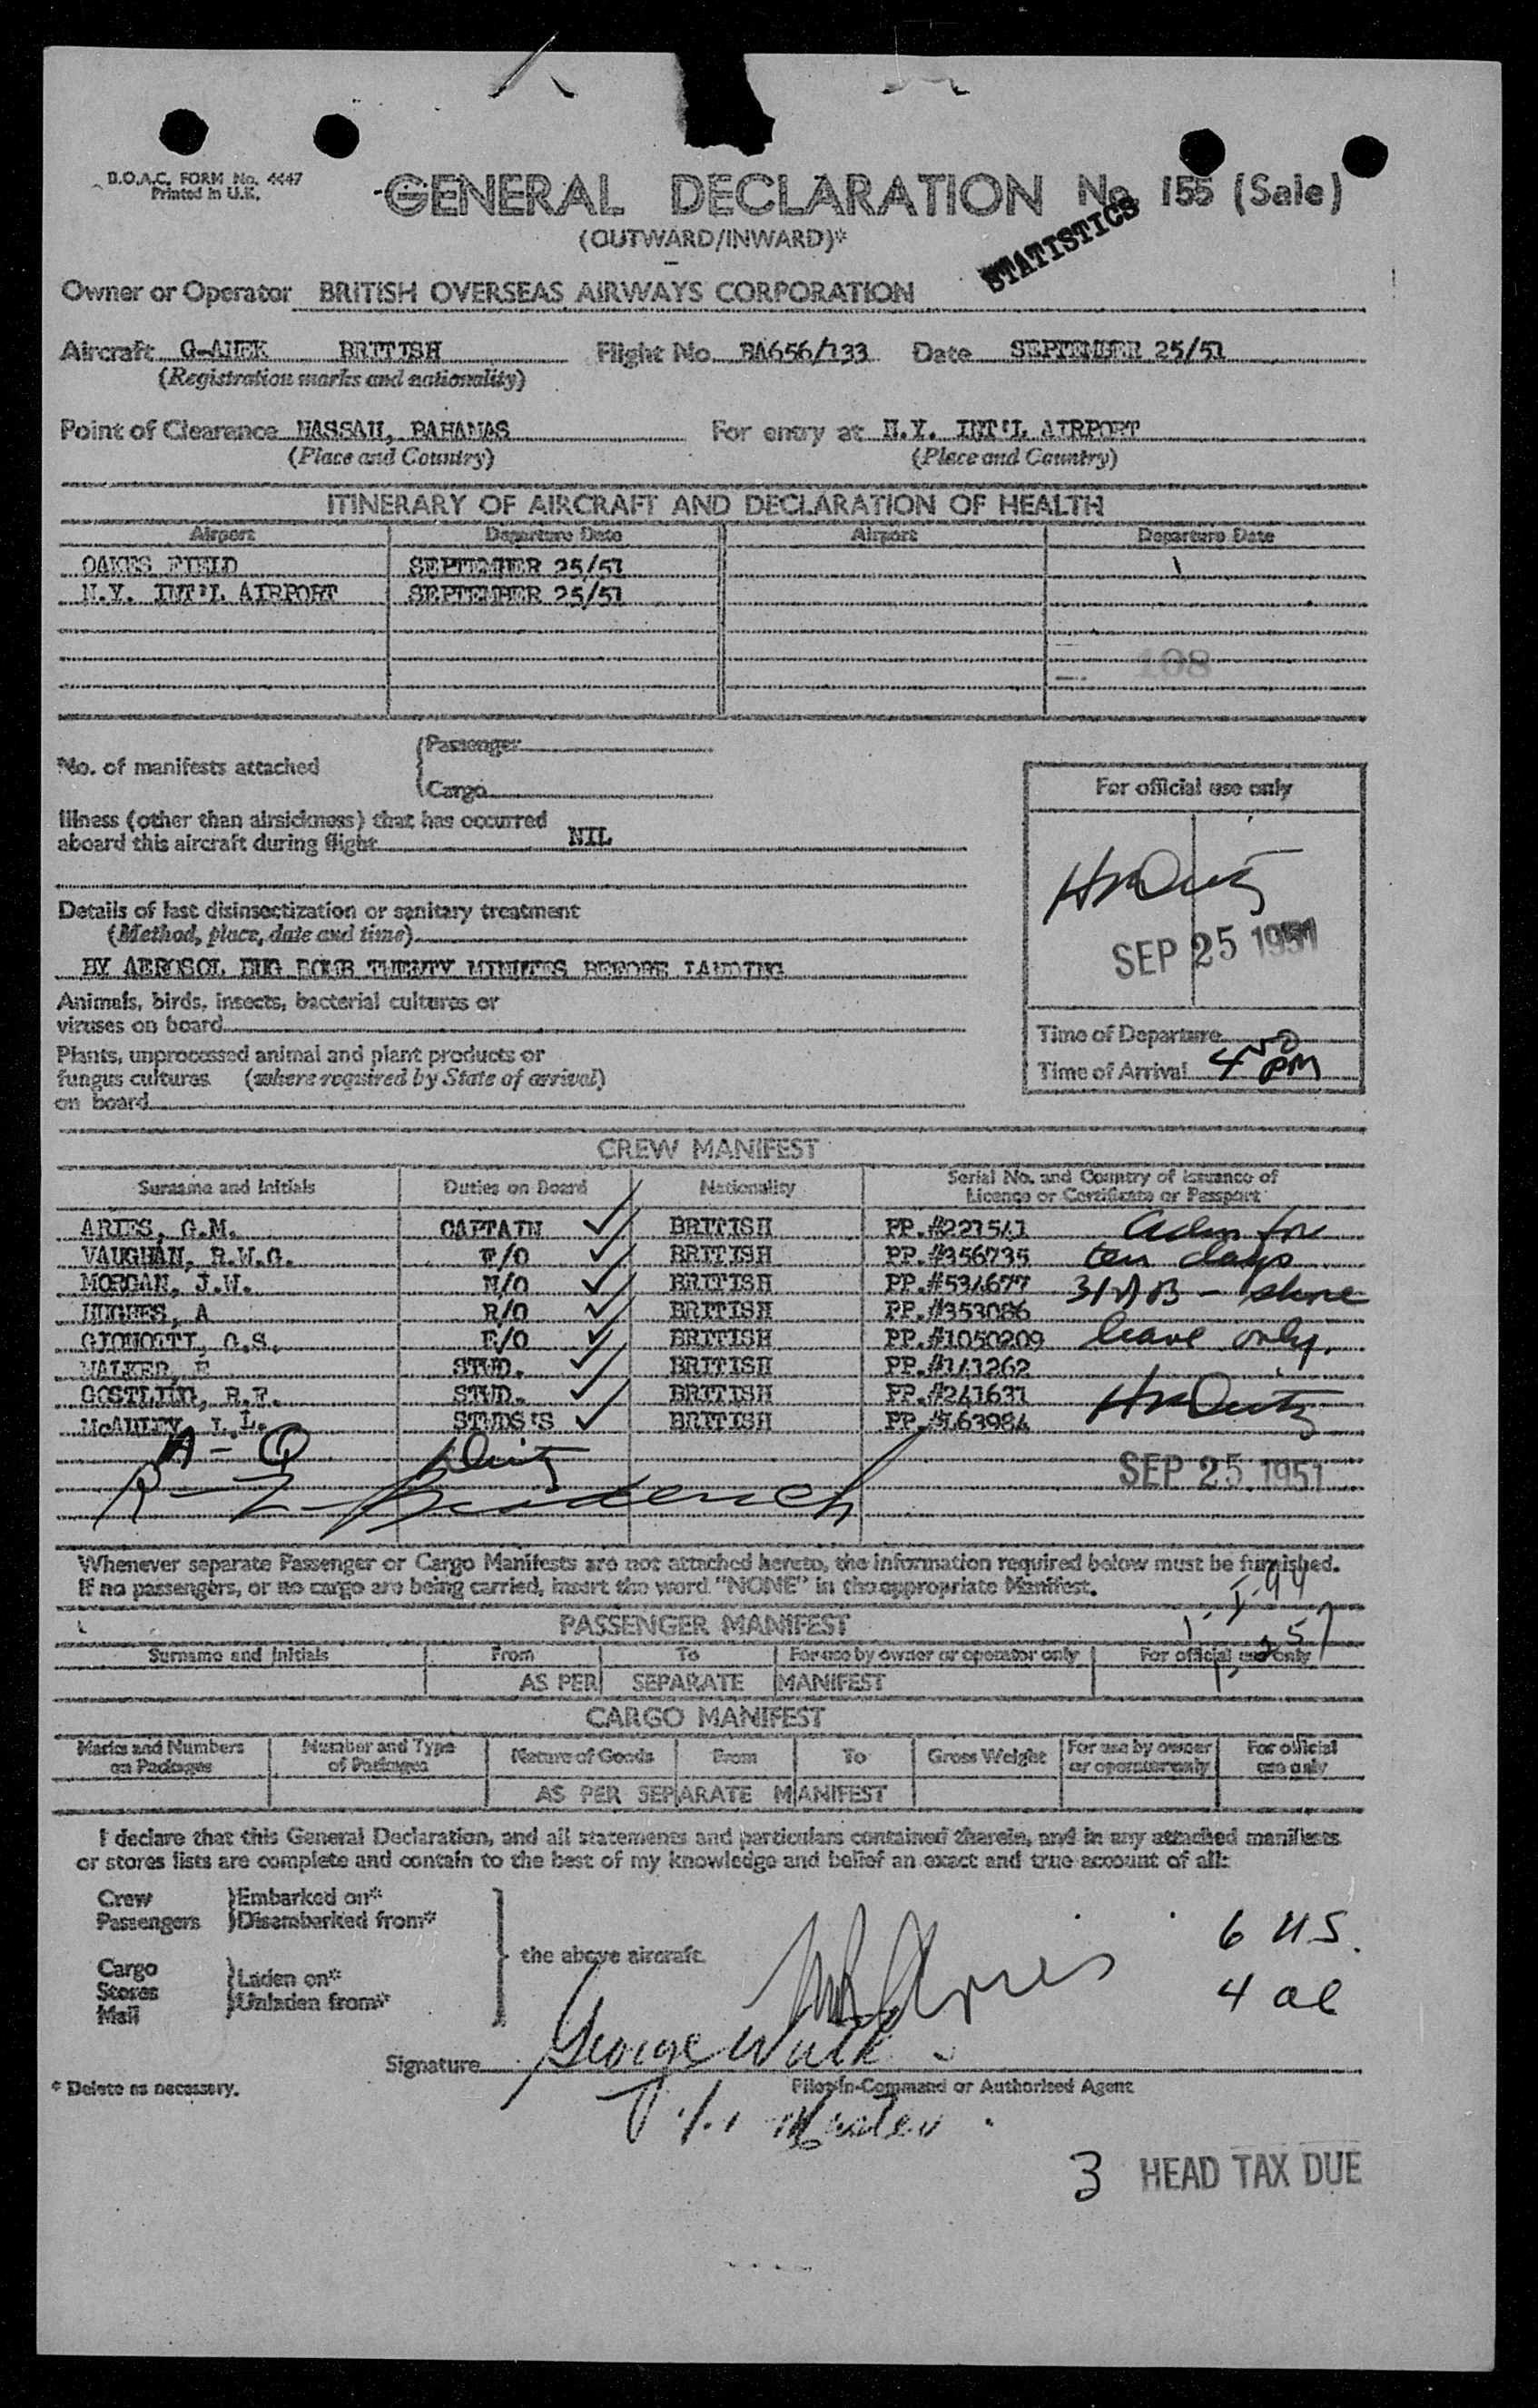 B.O.A.C. FORM No. 4447
Printed in U.K.
GENERAL DECLARATION No. 155 (Sale)
(OUTWARD/INWARD)*
STATISTICS
Owner or Operator BRITISH OVERSEAS AIRWAYS CORPORATION
Aircraft BRITISH Flight No. BA656/133 Date SEPTEMBER 25/51
(Registration marks and nationality)
Point of Clearance NASSAU, BAHAMAS For entry at N.Y. INT'L AIRPORT
(Place and Country) (Place and Country)
ITINERARY OF AIRCRAFT AND DECLARATION OF HEALTH
Airport Departure Date Airport Departure Date
OAKES FIELD SEPTEMBER 25/51
N.Y. INT'L AIRPORT SEPTEMBER 25/51
108
No. of manifests attached
Passenger
Cargo
For official use only
Illness (other than airsickness) that has occurred
aboard this aircraft during flight NIL
Details of last disinsectization or sanitary treatment
(Method, place, date and time)
SEP 25 1951
BY AEROSOL BUG BOMB TWENTY MINUTES BEFORE LANDING
Animals, birds, insects, bacterial cultures or
viruses on board
Time of Departure
Plants, unprocessed animal and plant products or
fungus cultures (where required by State of arrival)
on board
Time of Arrival 4 50 PM
CREW MANIFEST
Surname and Initials Duties on Board Nationality Serial No. and Country of Issuance of
Licence or Certificate or Passport
ARIES, G.M. CAPTAIN BRITISH PP.#221541 Adm for
VAUGHAN, R.W.G. F/O BRITISH PP.#356735 ten days
MORGAN, J.W. N/O BRITISH PP.#534677 - shore
HUGHES, A R/O BRITISH PP.#353086
G.S. E/O BRITISH PP.#1050209 leave only.
WALKER, F STWD. BRITISH PP.#141262
GOSTLING, R.F. STWD. BRITISH PP.#241631
McAULEY, L.L. STWDS'S BRITISH PP.#L63984
SEP 25 1951
Whenever separate Passenger or Cargo Manifests are not attached hereto, the information required below must be furnished.
If no passengers, or no cargo are being carried, insert the word "NONE" in the appropriate Manifest.
PASSENGER MANIFEST
Surname and Initials From To For use by owner or operator only For official use only
AS PER SEPARATE MANIFEST
CARGO MANIFEST
Marks and Numbers on Packages Number and Type of Packages Nature of Goods From To Gross Weight For use by owner or operator only For official use only
AS PER SEPARATE MANIFEST
I declare that this General Declaration, and all statements and particulars contained therein, and in any attached manifests
or stores lists are complete and contain to the best of my knowledge and belief an exact and true account of all:
Crew Embarked on*
Passengers Disembarked from*
the above aircraft.
Cargo
Stores
Mail
Laden on*
Unladen from*
6 US.
4 al
Signature
Pilot-in-Command or Authorised Agent
* Delete as necessary.
3 HEAD TAX DUE